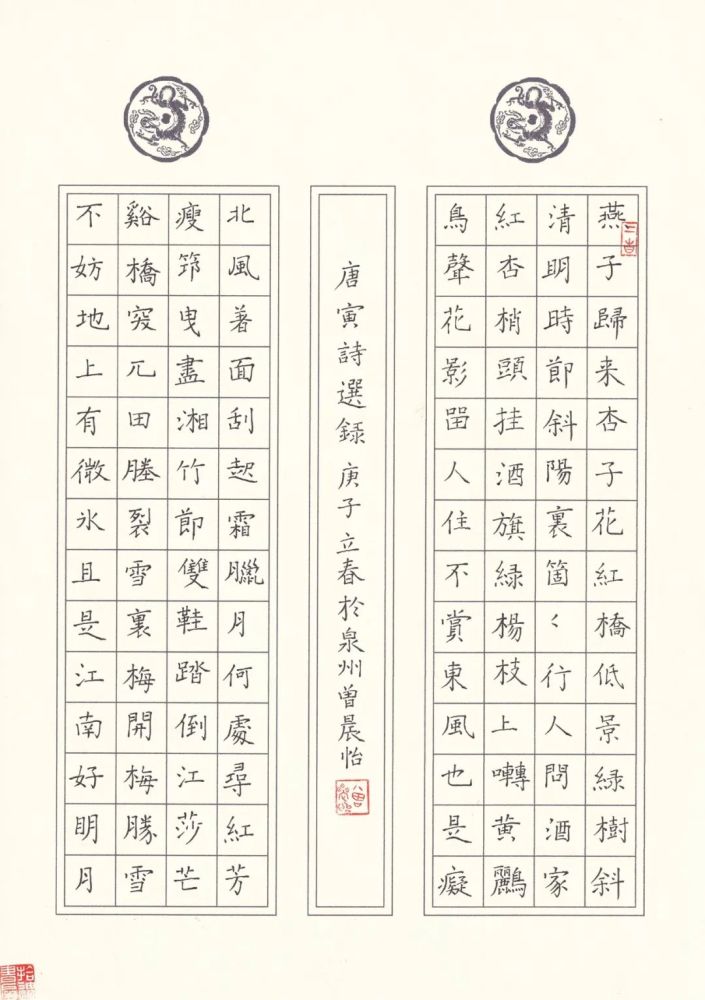 燕子歸来杏子花紅橋低景緑樹斜
清明時節斜陽裏箇〻行人問酒家
紅杏梢頭挂酒旗緑楊枝上囀黄鸝
鳥聲花影畱人住不賞東風也是癡
唐寅詩選録 庚子立春於泉州曾晨怡
北風著面刮起霜臘月何處尋紅芳
瘦筇曳盡湘竹節雙鞋踏倒江莎芒
谿橋突兀田塍裂雪裏梅開梅勝雪
不妨地上有微氷且是江南好明月